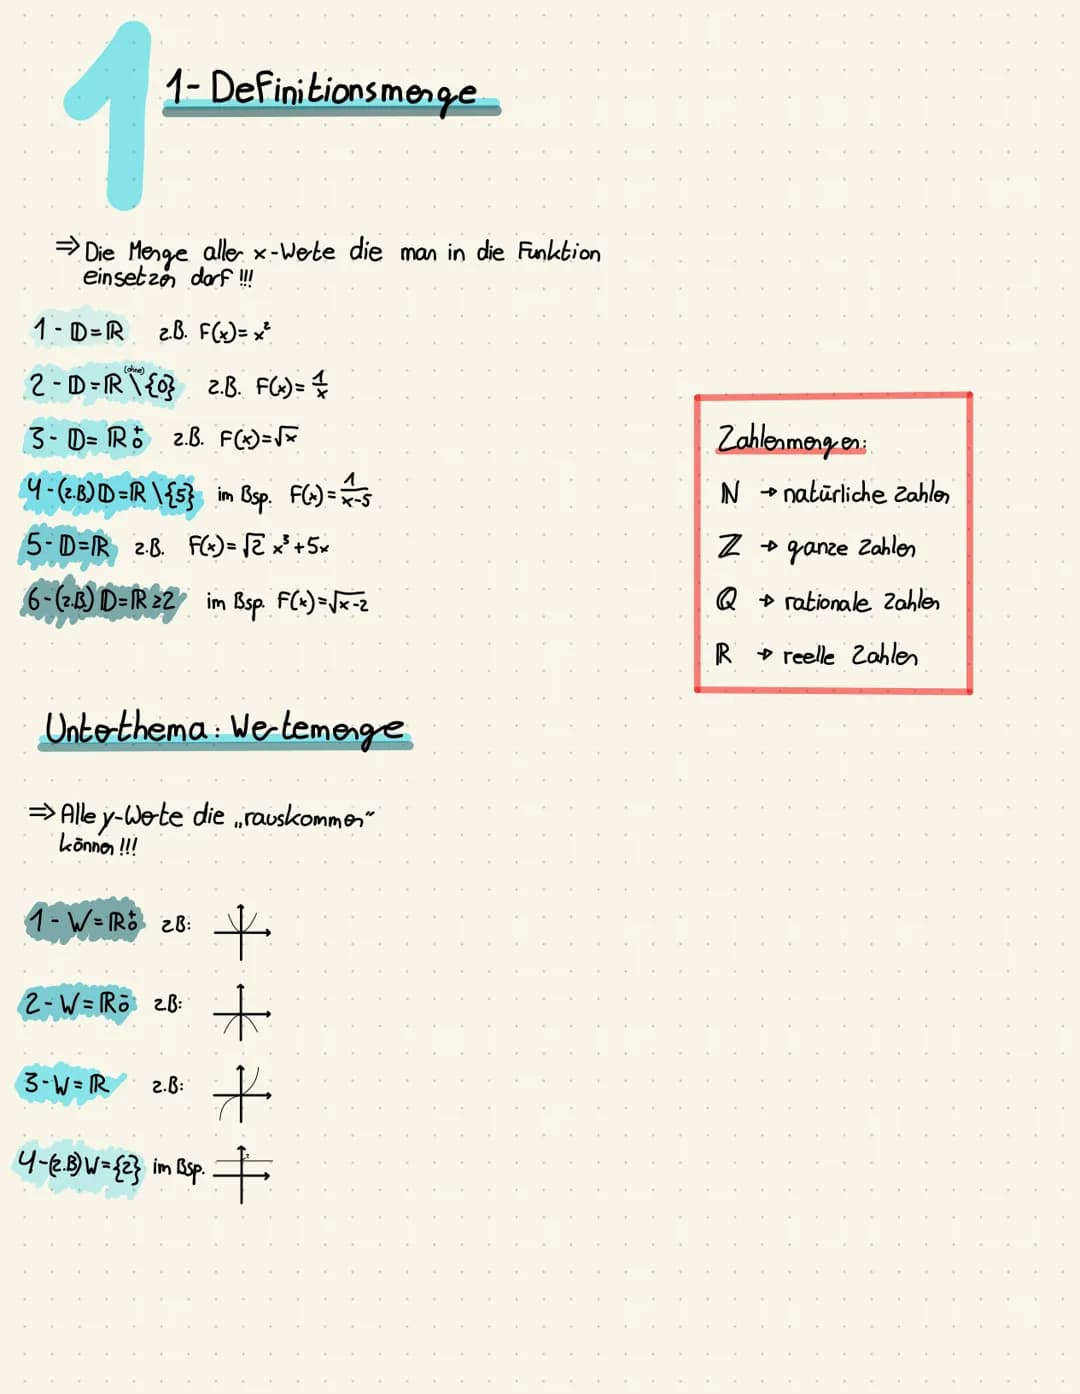 1
1- Definitionsmenge
⇒ Die Menge aller x-Werte die man in die Funktion
einsetzen darf !!!
1 - 𝔻=ℝ z.B. F(x)= x²
(ohne)
2 - 𝔻=ℝ \ {0} z.B. F(x)= 1/x
3 - 𝔻= ℝ₀⁺ z.B. F(x)=√x
4 - (z.B) 𝔻=ℝ \ {5} im Bsp. F(x)= 1/(x-5)
5 - 𝔻=ℝ z.B. F(x)= √2 x³ +5x
6 - (z.B) 𝔻=ℝ ≥2 im Bsp. F(x)=√(x-2)
Zahlenmengen:
ℕ → natürliche Zahlen
ℤ → ganze Zahlen
ℚ → rationale Zahlen
ℝ → reelle Zahlen
Unterthema: Wertemenge
⇒ Alle y-Werte die „rauskommen“
können !!!
1 - W=ℝ₀⁺ zB:
2 - W=ℝ₀⁻ z.B:
3 - W=ℝ z.B:
4 - (z.B) W={2} im Bsp. 2